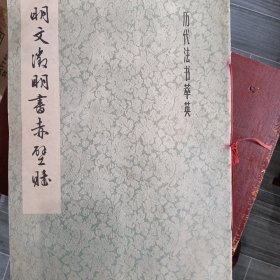 明文徵明書赤壁賦
历代法书萃英